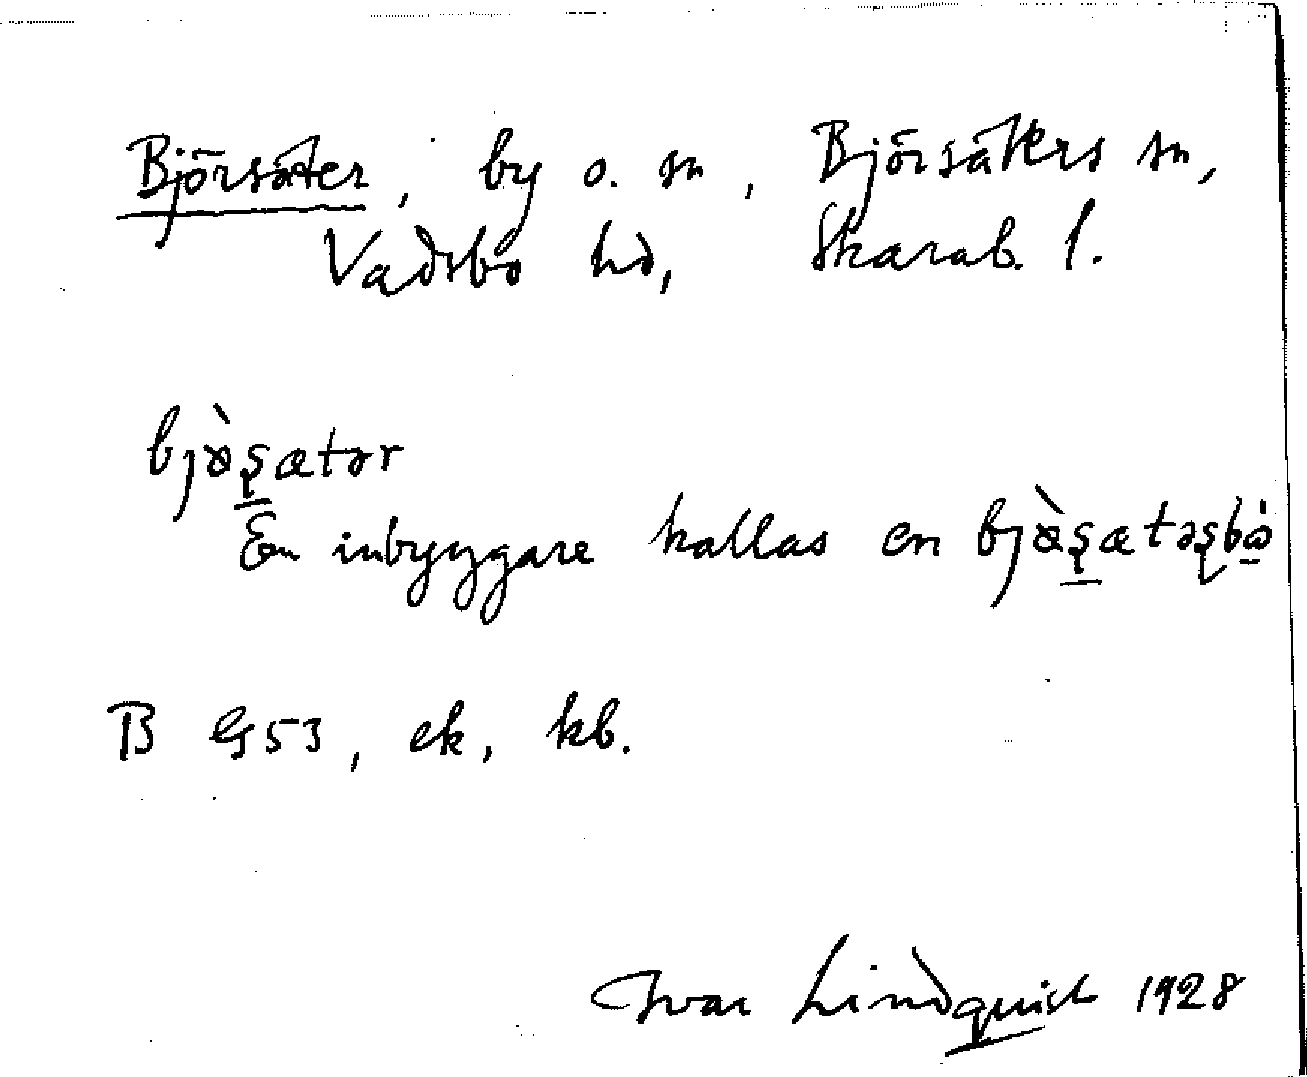 Björsäter, by o. sn, Björsäters sn,
Vadsbo hd, Skarab. l.
bjø̀ʂætər
En inbyggare kallas en bjø̀ʂætəʂbo
B G53, ek, kb.
Ivar Lindquist 1928